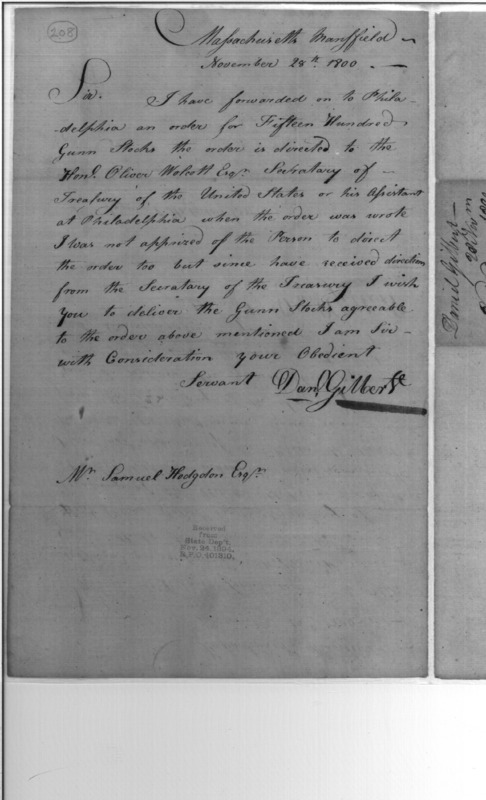 208
Massachusetts Mansfield
November 28th. 1800. —
Sir. I have forwarded on to Phila-
-delphia an order for Fifteen Hundred
Gunn Stocks the order is directed to the
Honl. Oliver Wolcott Esqr. Secratary of —
Treasury of the United States or his Assistant
at Philadelphia when the order was wrote
I was not apprized of the Person to direct
the order too but sinse have received direction
from the Secratary of the Treasury I wish
you to deliver the Gunn Stocks agreeable
to the order above mentioned I am Sir —
with Consideration your Obedient
Servant Danl. Gilbert
Mr. Samuel Hodgdon Esqr.
Received
From
State Dep't.
Nov. 24, 1904.
R.P.O. 401810.
Daniel Gilbert —
28th Nov